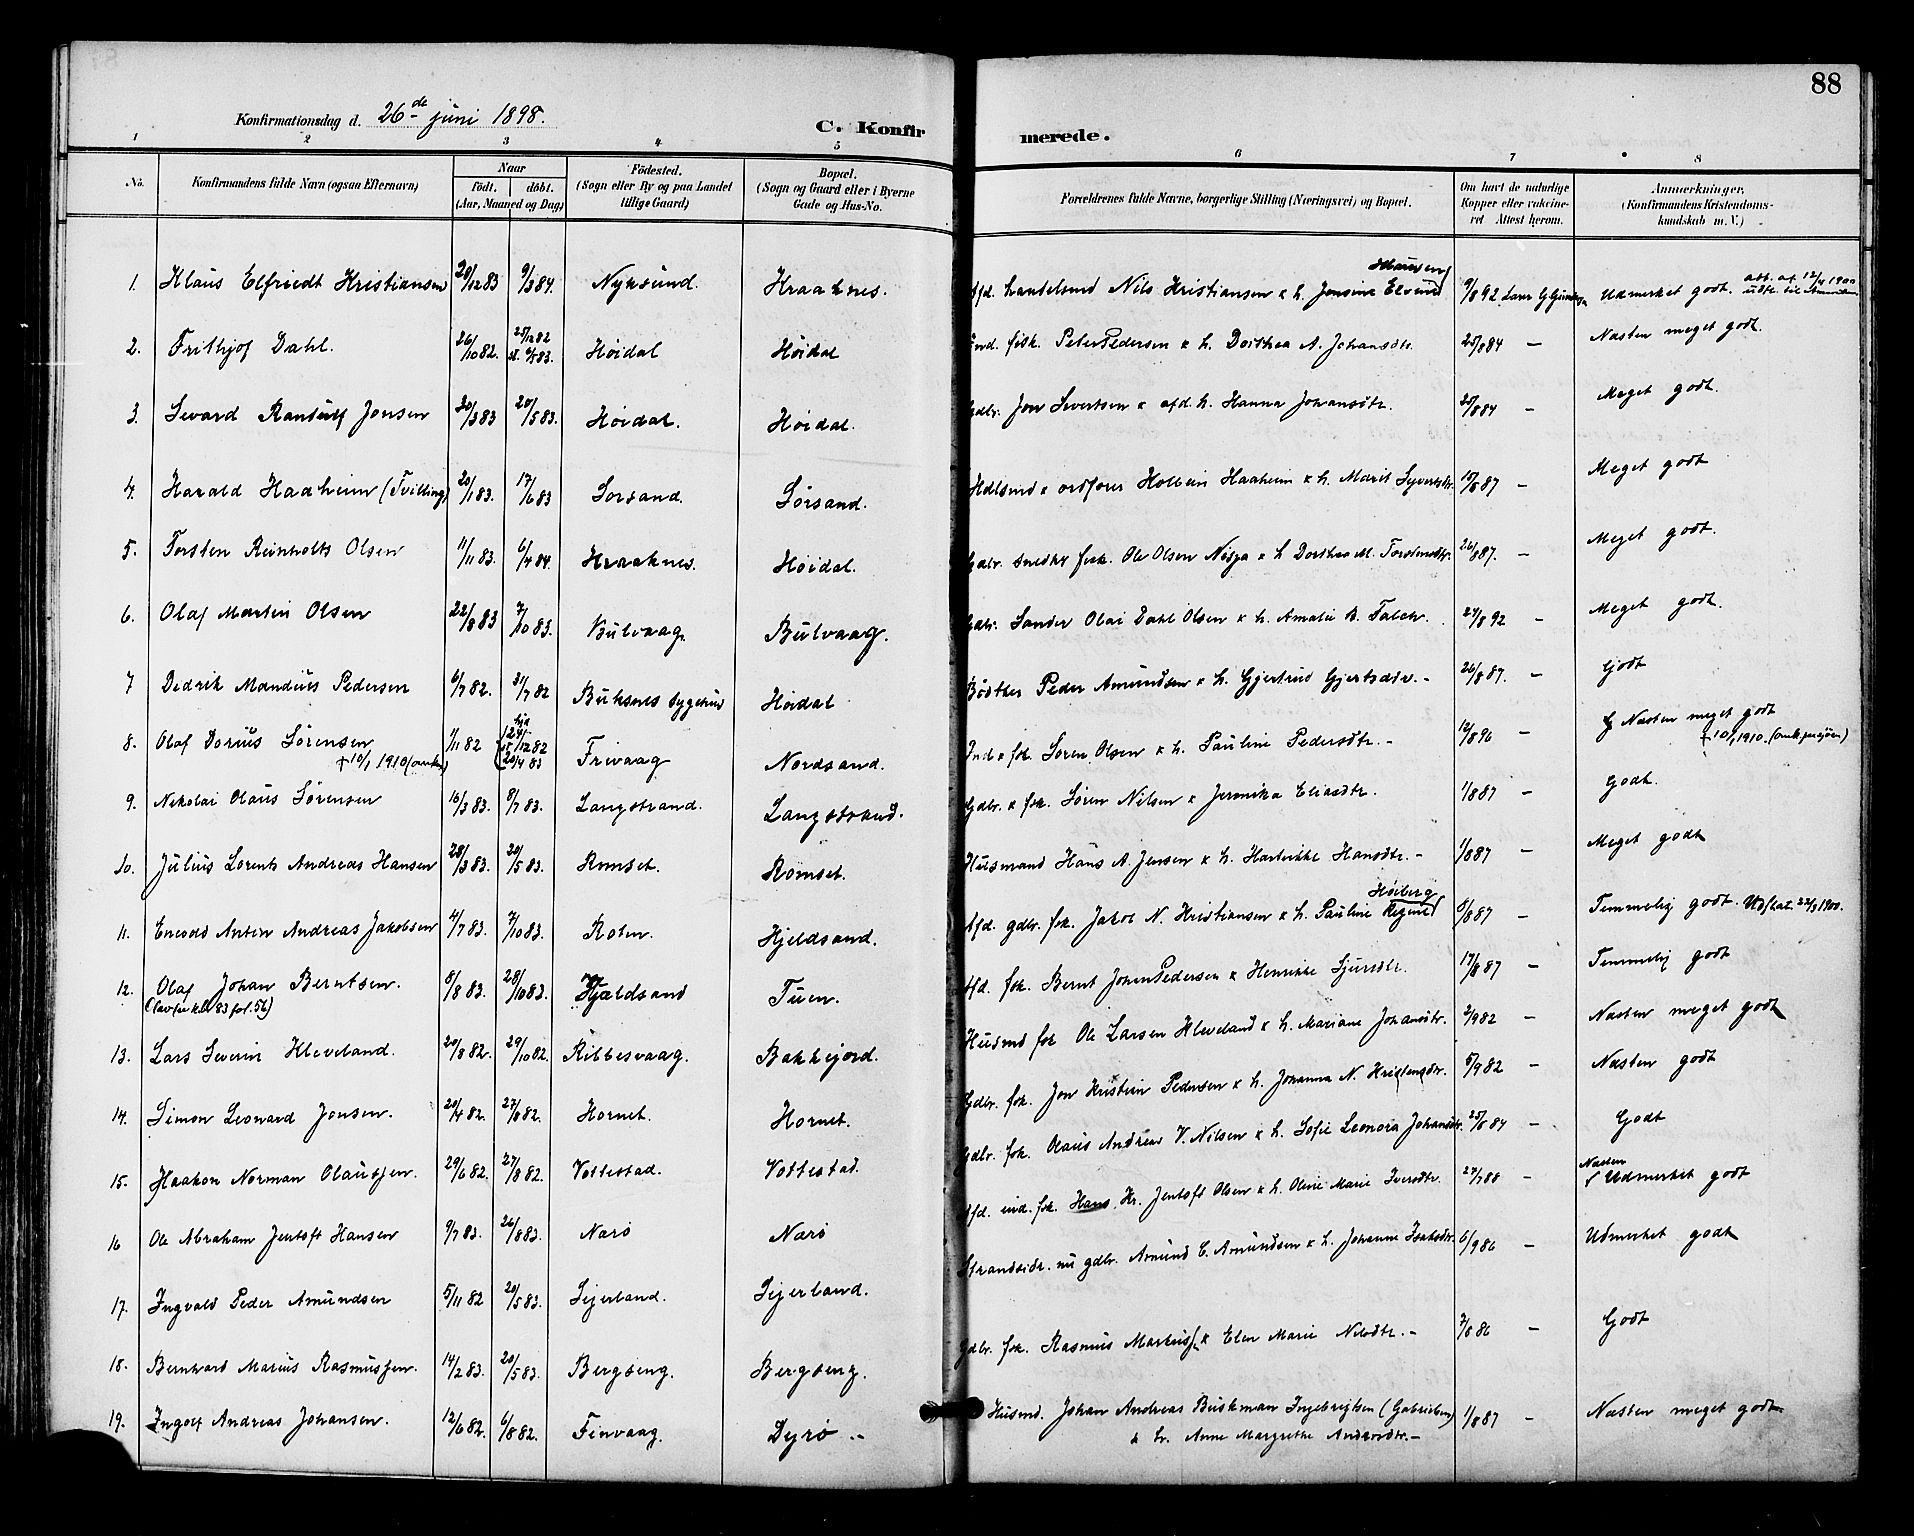 88
Konfirmationsdag d. 26de juni 1898.
C. Konfirmerede.
1 2 3 4 5 6 7 8
No. Konfirmandens fulde Navn (ogsaa Efternavn) Naar födt. döbt. (Aar, Maaned og Dag) Födested. (Sogn eller By og paa Landet tillige Gaard) Bopæl. (Sogn og Gaard eller i Byerne Gade og Hus-No. Forældrenes fulde Navne, borgerlige Stilling (Næringsvei) og Bopæl. Om havt de naturlige Kopper eller vakcineret Attest herom. Anmærkninger. (Konfirmandens Kristendomskundskab m. V.)
1. Klaus Elfriedt Kristiansen 20/12 83 9/3 84. Nyksund. Kraaknes. Afd. handelsmd Nils Kristiansen & h. Jensine 9/8 92 Udmerket godt. att. af 12/4 1900
2. Frithjof Dahl. 26/10 82. 25/12 82 Høidal Høidal Ind. fisk. Peter Pedersen & h. Dorthea A. Johansdtr. 25/8 84 — Næsten meget godt.
3. Sevard Jonsen 20/3 83 20/5 83. Høidal. Høidal. Gdbr. Jon Sivertsen & afd. h. Hanna Johansdtr. 25/8 84 — Meget godt.
4. Harald Haaheim (Tvilling) 20/1 83. 17/6 83 Sorsand. Sørsand. Hdlsmd & ordfører Haaheim & h. Marit 15/8 87 — Meget godt
5. Torsten Reinholts Olsen 11/11 83. 6/4 84. Kraaknes. Høidal. Gdbr. snedker fisk. Ole Olsen & h Dorthea M. Torstensdtr. 26/8 87. — Meget godt.
6. Olaf Martin Olsen 22/8 83 7/10 83. Bulvaag. Bulvaag. Gdbr. Sander Olai Dahl Olsen & h. Amalie B. 24/8 92 — Meget godt.
7 Dedrik Mandius Pedersen 6/7 82. 31/7 82 Buksnes sygehus Høidal Bødker Peder Amundsen & h. Gjertrud Gjertsdtr. — 26/8 87. — Godt
8. Olaf Dorius Sørensen 1/11 82 hja 12 82 20/4 83 Frivaag Nordsand. Ind & fsk. Soren Olsen & h. Pauline Pedersdtr. — 12/8 96 — Næsten meget godt
+ 10/1 1910 (omk.) + 10/1 1910. (omk. paa sjøen)
9. Nikolai Olaus Sørensen 16/3 83. 8/7 83. Langstrand. Langstrand. Gdbr. & fsk. Søren Nilsen & Jeronika Eliasdtr. 1/8 87 — Godt.
10. Julius Lorents Andreas Hansen 28/3 83. 20/5 83. Romset. Romset. Husmand Hans A. Jensen & h. Hansdtr. — 1/8 87 — Meget godt
11. Enevold Anton Andreas Jakobsen 4/7 83. 7/10 83. Roten. Hjeldsand. Afd. gdbr. fsk. Jakob N. Kristiansen & h. Pauline Regine Høiberg 8/8 87 — Temmelig godt. Udflat. 22/3 1900.
12. Olaf Johan Berntsen. 8/8 83. 28/10 83. Hjældsand Tuen. Afd. fsk. Bernt Johan Pedersen & Henrikke Sjursdtr. 17/8 87 — Temmelig godt
13. Lars Severin Kleveland. 20/8 82. 29/10 82. Ribbesvaag. Bakkejord. Husmd fsk Ole Larsen Kleveland & h. Mariane Johansdtr. 2/9 82 — Næsten meget godt
14. Simon Leonard Jonsen. 20/4 82. 27/8 82. Hornet. Hornet. Gdbr. fsk. Jon Kristian Pedersen & h. Johanna N. 5/9 82 — Næsten godt
15. Haakon Norman Olaussen. 29/6 82. 27/8 82. Vottestad. Vottestad. Gdbr. fsk. Olaus Andreas V. Nilsen & h. Sofie Leonora Johansdtr. 25/8 84 — Godt
16 Ole Abraham Jentoft Hansen 9/7 83. 26/8 83. Nærø Nærø Afd. ind. fsk. Hans Kr. Jentoft Olsen & h. Oline Marie Iversdtr. 27/7 88 — Næsten Udmerket godt
17. Ingvald Peder Amundsen 5/11 82 20/5 83. Sejerland. Sejerland. Strandsidr. nu gdbr. Amund C. Amundsen & h. Johanne Isaksdtr. 6/9 86 — Udmerket godt
18. Bernhard Marius Rasmussen. 14/2 83. 20/5 83. Bergseng. Bergseng. Gdbr. fsk. Rasmus & Elen Marie Nilsdtr. — 7/8 86 — Godt
19. Ingolf Andreas Johansen. 12/6 82. 6/8 82. Finvaag. Dyrø .. Husmd. Johan Andreas Buskman Ingebrigtsen (Gabrielsen) 1/8 87 — Næsten meget godt
& h. Anne Margrethe Andersdtr. —